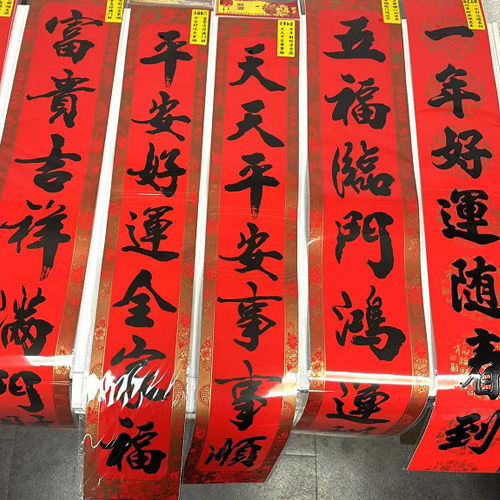 富貴吉祥滿門
平安好運全家福
天天平安事事順
五福臨門鴻運
一年好運随春到